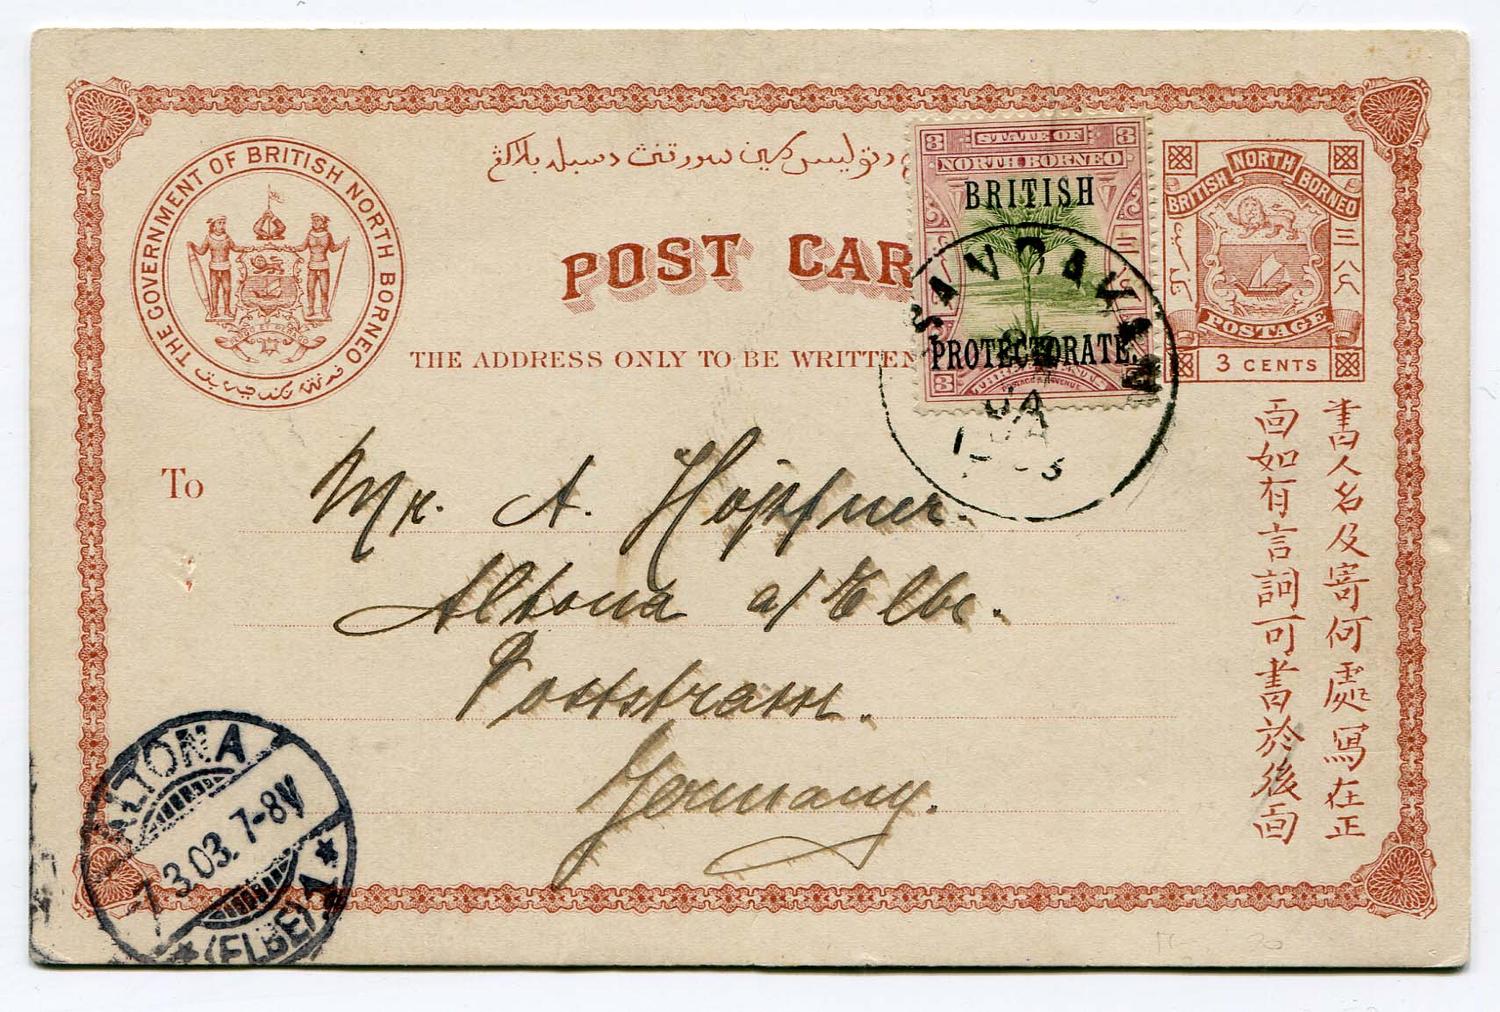 THE GOVERNMENT OF BRITISH NORTH BORNEO
POST CAR
THE ADDRESS ONLY TO BE WRITTEN
STATE OF
NORTH BORNEO
3 3
BRITISH
PROTECTORATE.
3 3
SANDAKAN
JA
BRITISH NORTH BORNEO
POSTAGE
3 CENTS
書人名及寄何處寫在正
面如有言詞可書於後面
To
Mr. A. Höpfner.
Altona a/Elbe.
Poststrasse.
Germany.
ALTONA
7.3.03. 7-8V
*(ELBE)1*